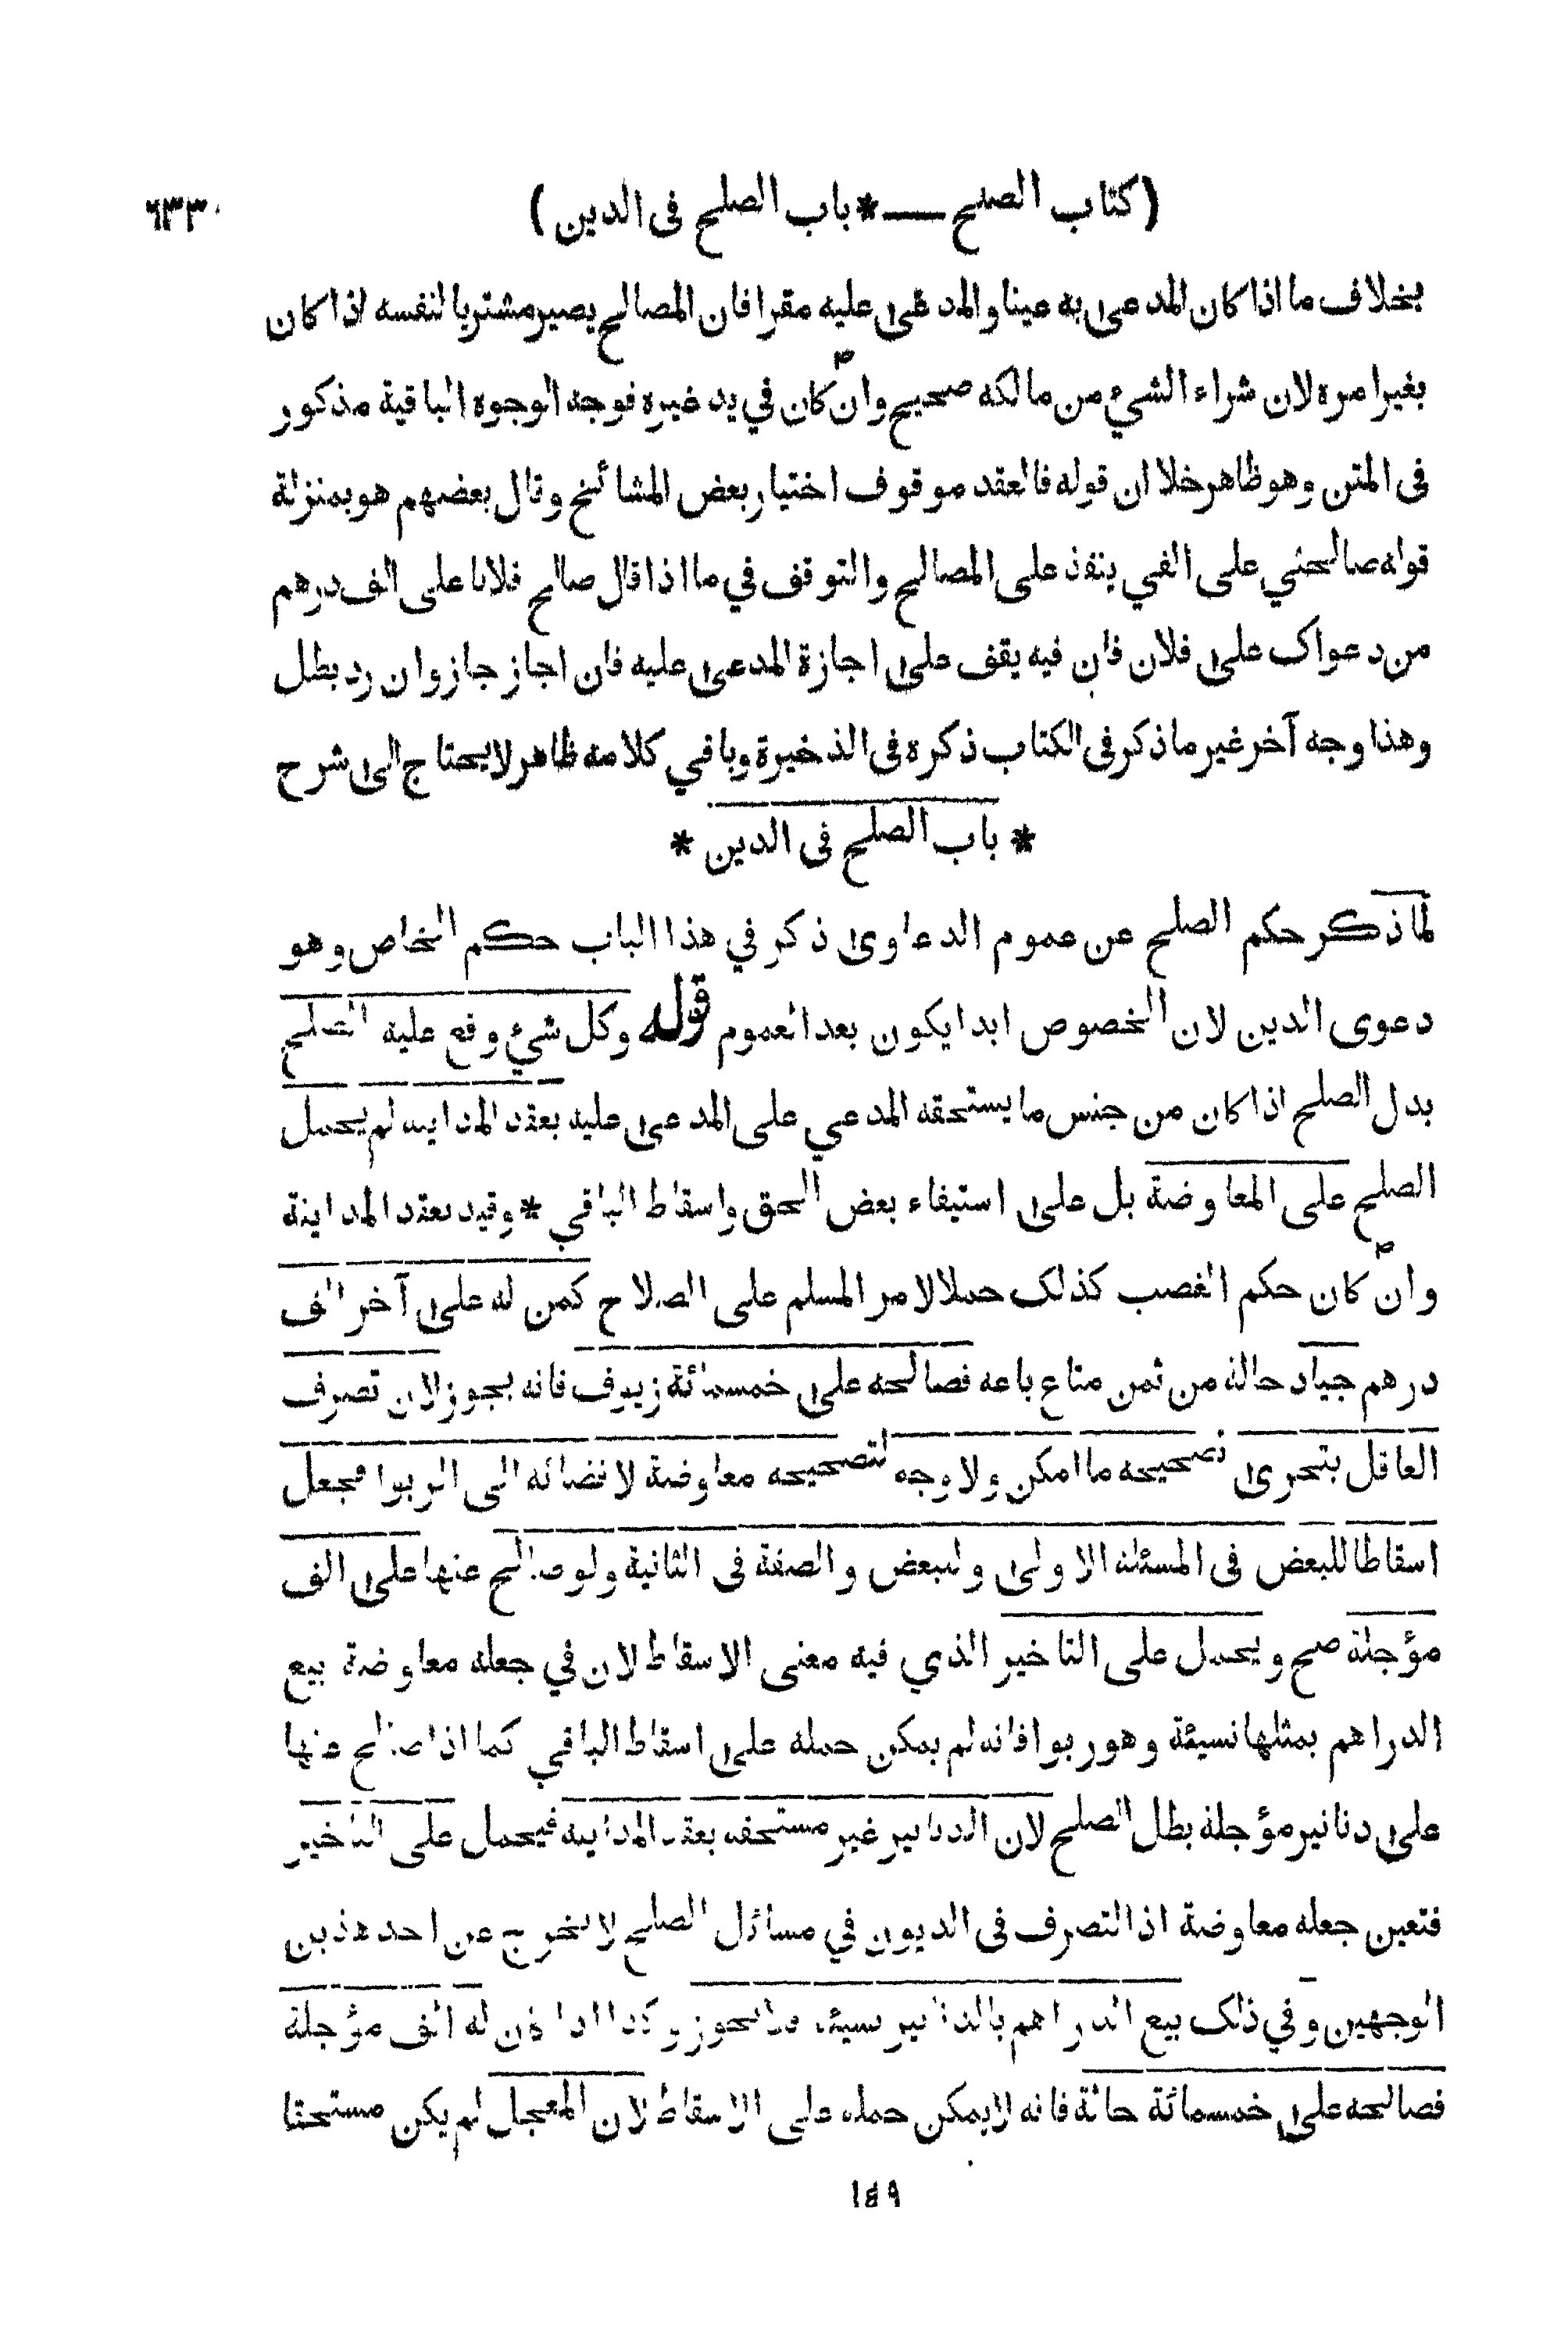 (كتاب الصلح — * باب الصلح فى الدين) ٦٣٣
بخلاف ما اذا كان المدعى به عينا والمدعى عليه مقرا فان المصالح يصير مشتريا لنفسه اذا كان
بغير امره لان شراء الشيء من مالكه صحيح وان كان في يد غيره فوجه الوجوه الباقية مذكور
فى المتن وهو ظاهر خلا ان قوله فالعقد موقوف اختيار بعض المشائخ وقال بعضهم هو بمنزلة
قوله صالحني على الفي ينفذ على المصالح والتوقف في ما اذا قال صالح فلانا على الف درهم
من دعواك على فلان فان فيه يقف على اجازة المدعى عليه فان اجاز جاز وان رد بطل
وهذا وجه آخر غير ما ذكر فى الكتاب ذكره فى الذخيرة وباقي كلامه ظاهر لا يحتاج الى شرح
* باب الصلح فى الدين *
لما ذكر حكم الصلح عن عموم الدعاوى ذكر في هذا الباب حكم الخاص وهو
دعوى الدين لان الخصوص ابدا يكون بعد العموم قوله وكل شيء وقع عليه الصلح
بدل الصلح اذا كان من جنس ما يستحقه المدعي على المدعى عليه بعقد المداينة لم يحمل
الصلح على المعاوضة بل على استيفاء بعض الحق واسقاط الباقي * وقيد بعقد المداينة
وان كان حكم الغصب كذلك حملا لامر المسلم على الصلاح كمن له على آخر الف
درهم جياد حالة من ثمن متاع باعه فصالحه على خمسمائة زيوف فانه يجوز لان تصرف
العاقل يتحرى تصحيحه ما امكن ولا وجه لتصحيحه معاوضة لافضائه الى الربوا فجعل
اسقاطا للبعض فى المسئلة الاولى وللبعض والصفة فى الثانية ولو صالح عنها على الف
مؤجلة صح ويحمل على التاخير الذي فيه معنى الاسقاط لان في جعله معاوضة بيع
الدراهم بمثلها نسيئة وهو ربوا فانه لم يمكن حمله على اسقاط الباقي كما اذا صالح عنها
على دنانير مؤجلة بطل الصلح لان الدنانير غير مستحقه بعقد المداينه فيحمل على التاخير
فتعين جعله معاوضة اذ التصرف فى الديون في مسائل الصلح لا يخرج عن احد هذين
الوجهين وفي ذلك بيع الدراهم بالدنانير نسيئة فلا يجوز وكذا اذا كان له الف مؤجلة
فصالحه على خمسمائة حالة فانه لا يمكن حمله على الاسقاط لان المعجل لم يكن مستحقا
١٤٩